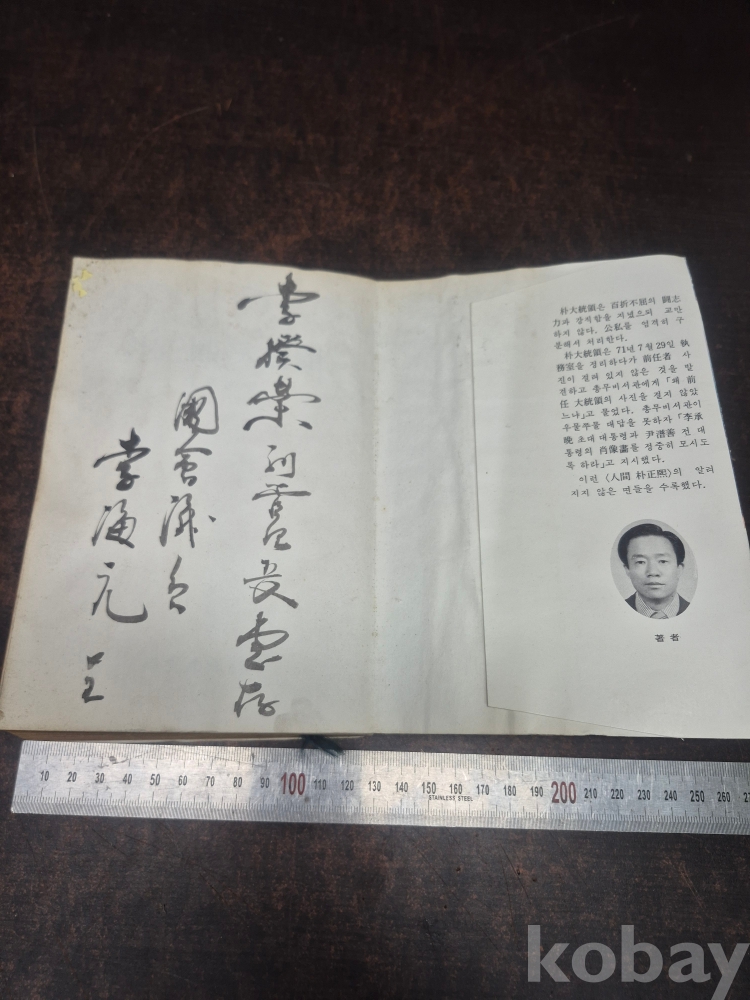 李揆榮
國會議員
李海元 呈
朴大統領은 百折不屈의 鬪志
力과 강직함을 지녔으되 교만
하지 않다. 公私를 엄격히 구
분해서 처리한다.
朴大統領은 71년 7월 29일 執
務室을 정리하다가 前任者 사
진이 걸려 있지 않은 것을 발
견하고 총무비서관에게 「왜 前
任 大統領의 사진을 걸지 않았
느냐」고 물었다. 총무비서관이
우물쭈물 대답을 못하자 「李承
晩 초대 대통령과 尹潽善 전 대
통령의 肖像畵를 정중히 모시도
록 하라」고 지시했다.
이런 〈人間 朴正熙〉의 알려
지지 않은 면들을 수록했다.
著者
10 20 30 40 50 60 70 80 90 100 110 120 130 140 150 160 170 180 190 200 210 220 230 240 250 260
STAINLESS STEEL
kobay